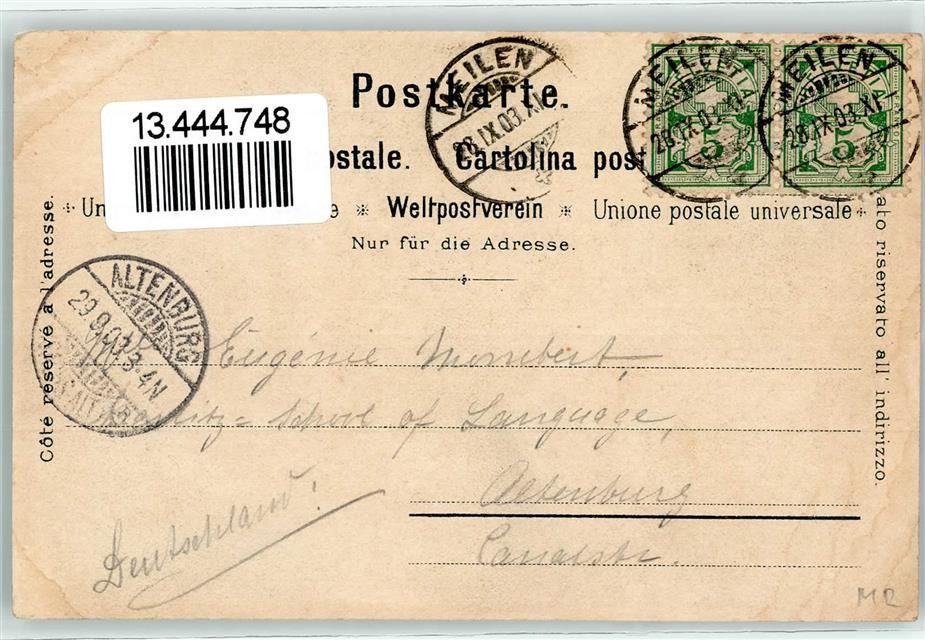 Postkarte.
13.444.748
ostale. Cartolina post
Un e * Weltpostverein * Unione postale universale
Nur für die Adresse.
Côte réservé à l'adresse.
ato riservato all' indirizzo.
MEILEN
28.IX.03.XI
MEILEN
28.IX.03.XI
MEILEN
28.IX.03.XI
5
5
ALTENBURG
29.9.03. 3-4N
Eugénie
School of Language,
Altenburg
Deutschland!
MR